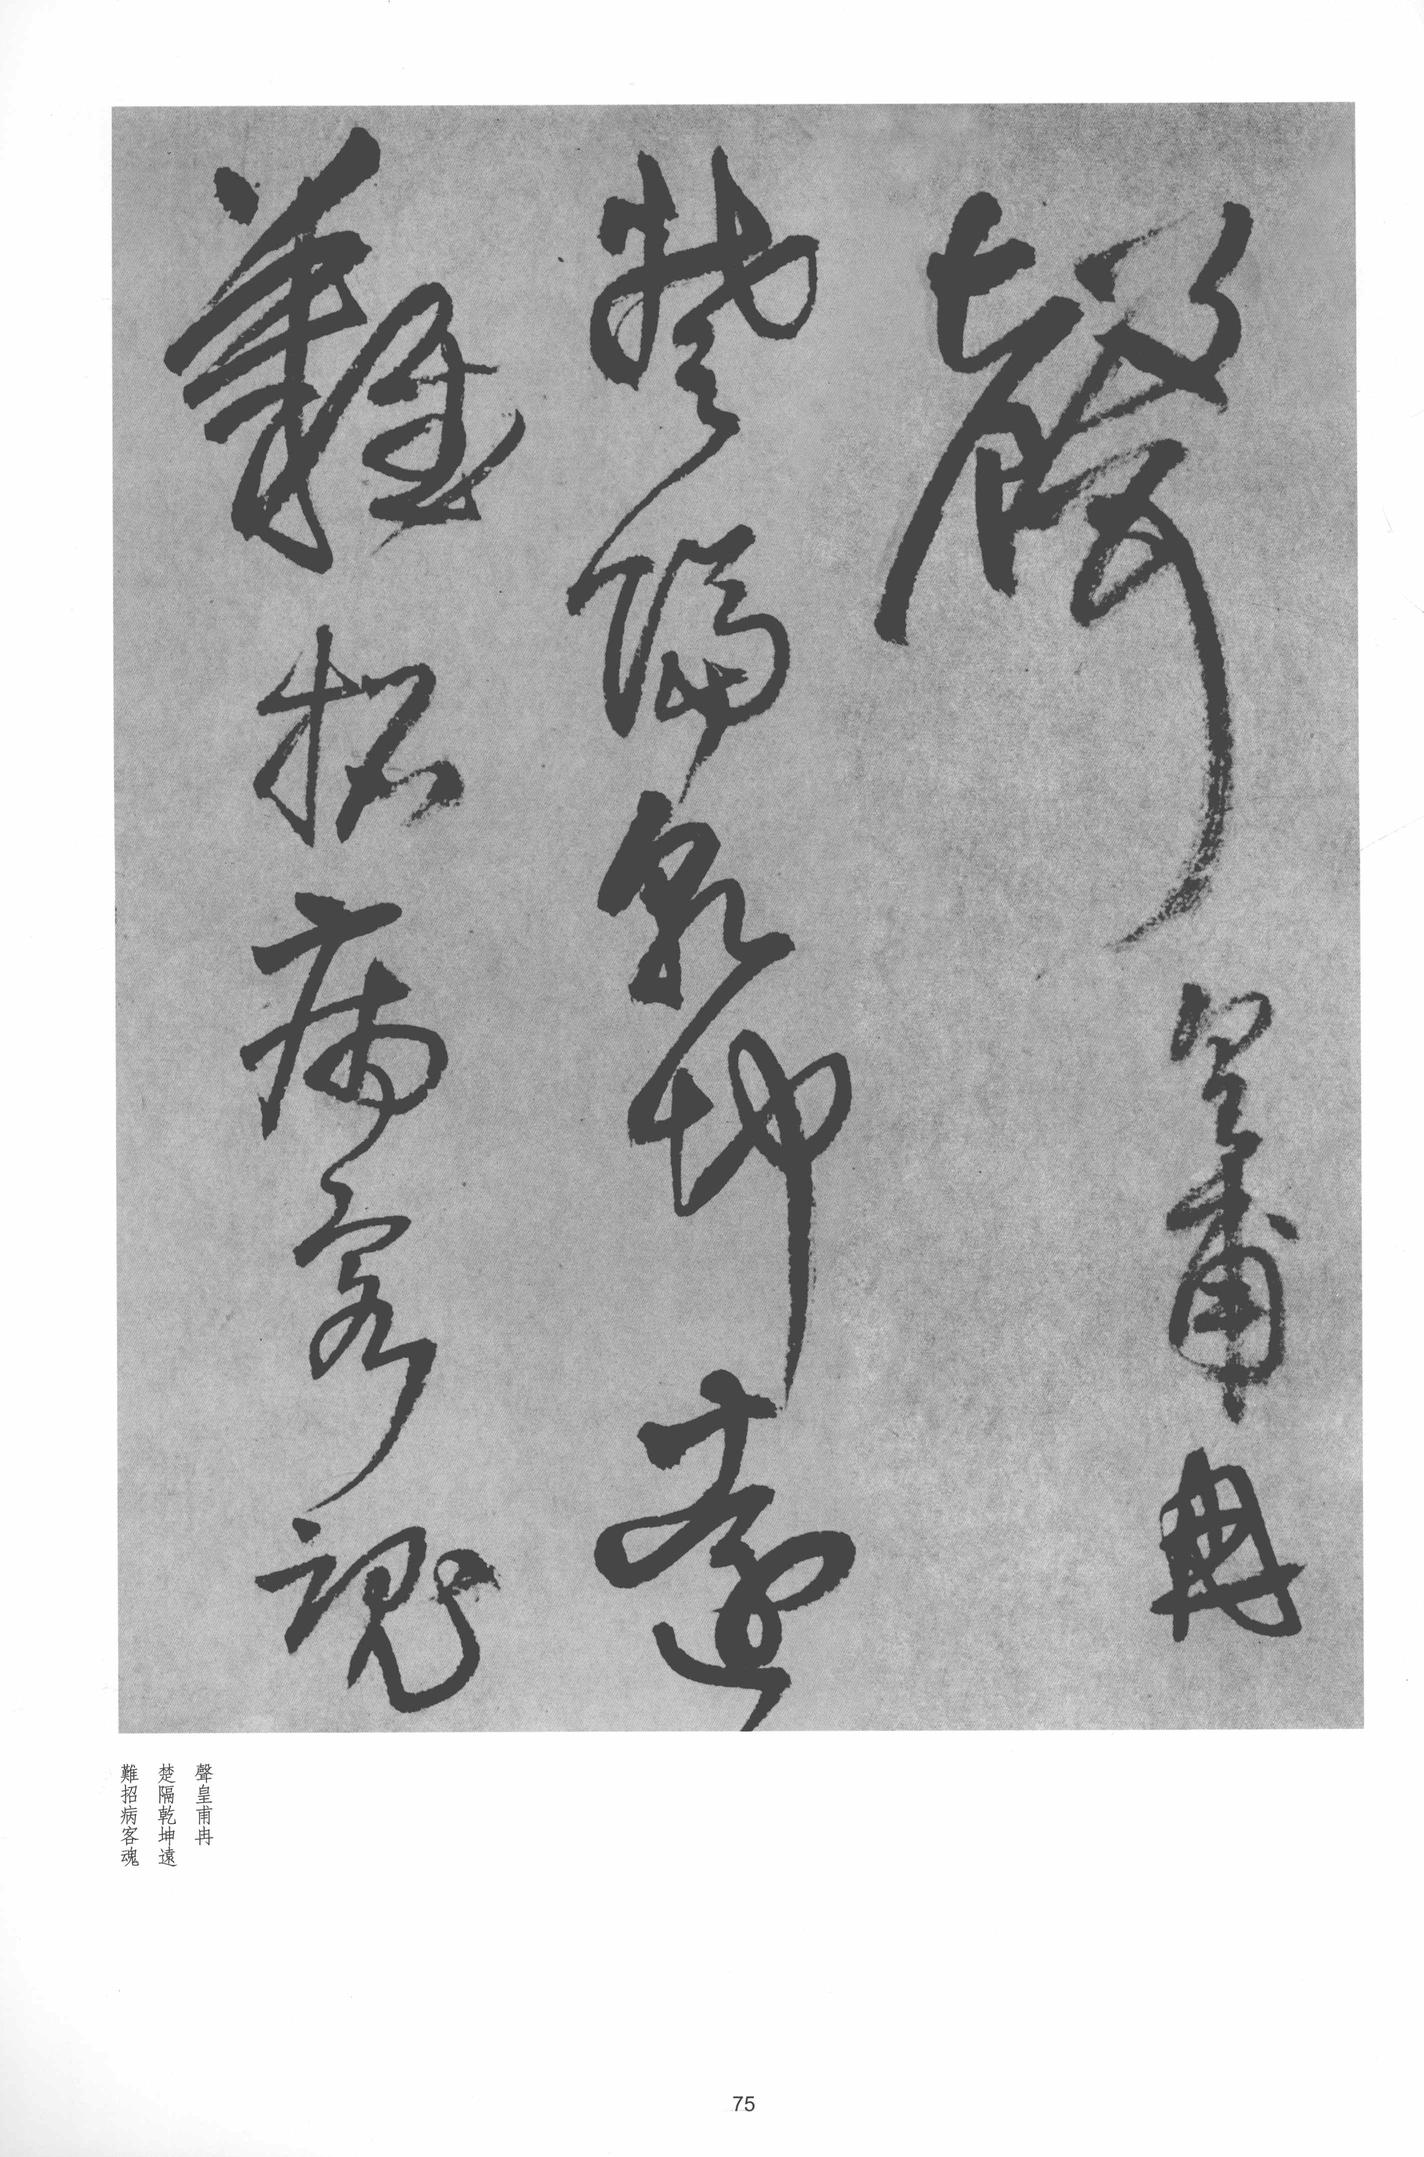 聲皇甫冉
楚隔乾坤遠
難招病客魂
聲皇甫冉
楚隔乾坤遠
難招病客魂
75